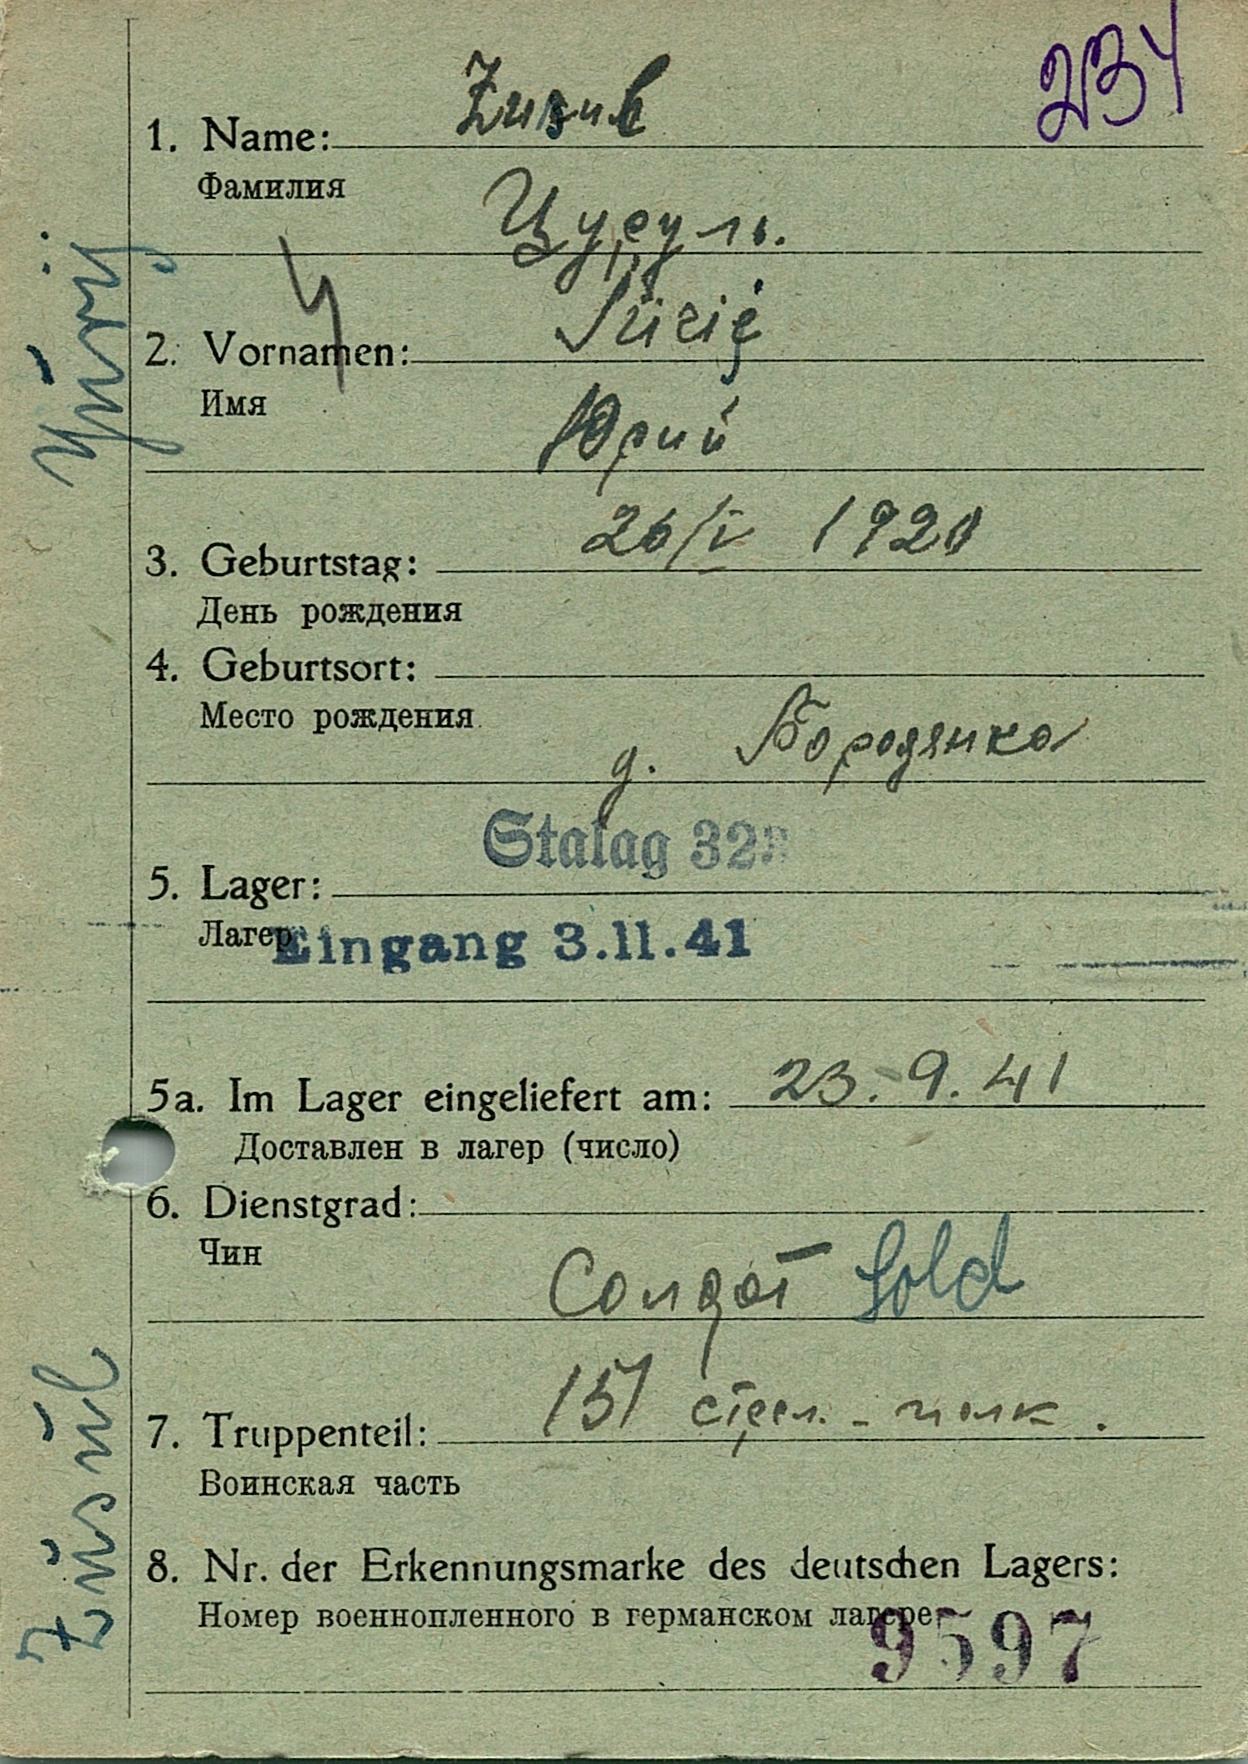 234
1. Name: Zusul
Фамилия
Цуруль.
2. Vornamen: Jürij
Имя
Юрий
3. Geburtstag: 26/V 1920
День рождения
4. Geburtsort:
Место рождения
д. Бородянка
Stalag 32
5. Lager:
Лагер
Eingang 3.11.41
5a. Im Lager eingeliefert am: 23.9.41
Доставлен в лагер (число)
6. Dienstgrad:
Чин
Солдат Sold
7. Truppenteil: 151 стрел. - полк.
Воинская часть
8. Nr. der Erkennungsmarke des deutschen Lagers:
Номер военнопленного в германском лагере
9597
Jürij
Züsül